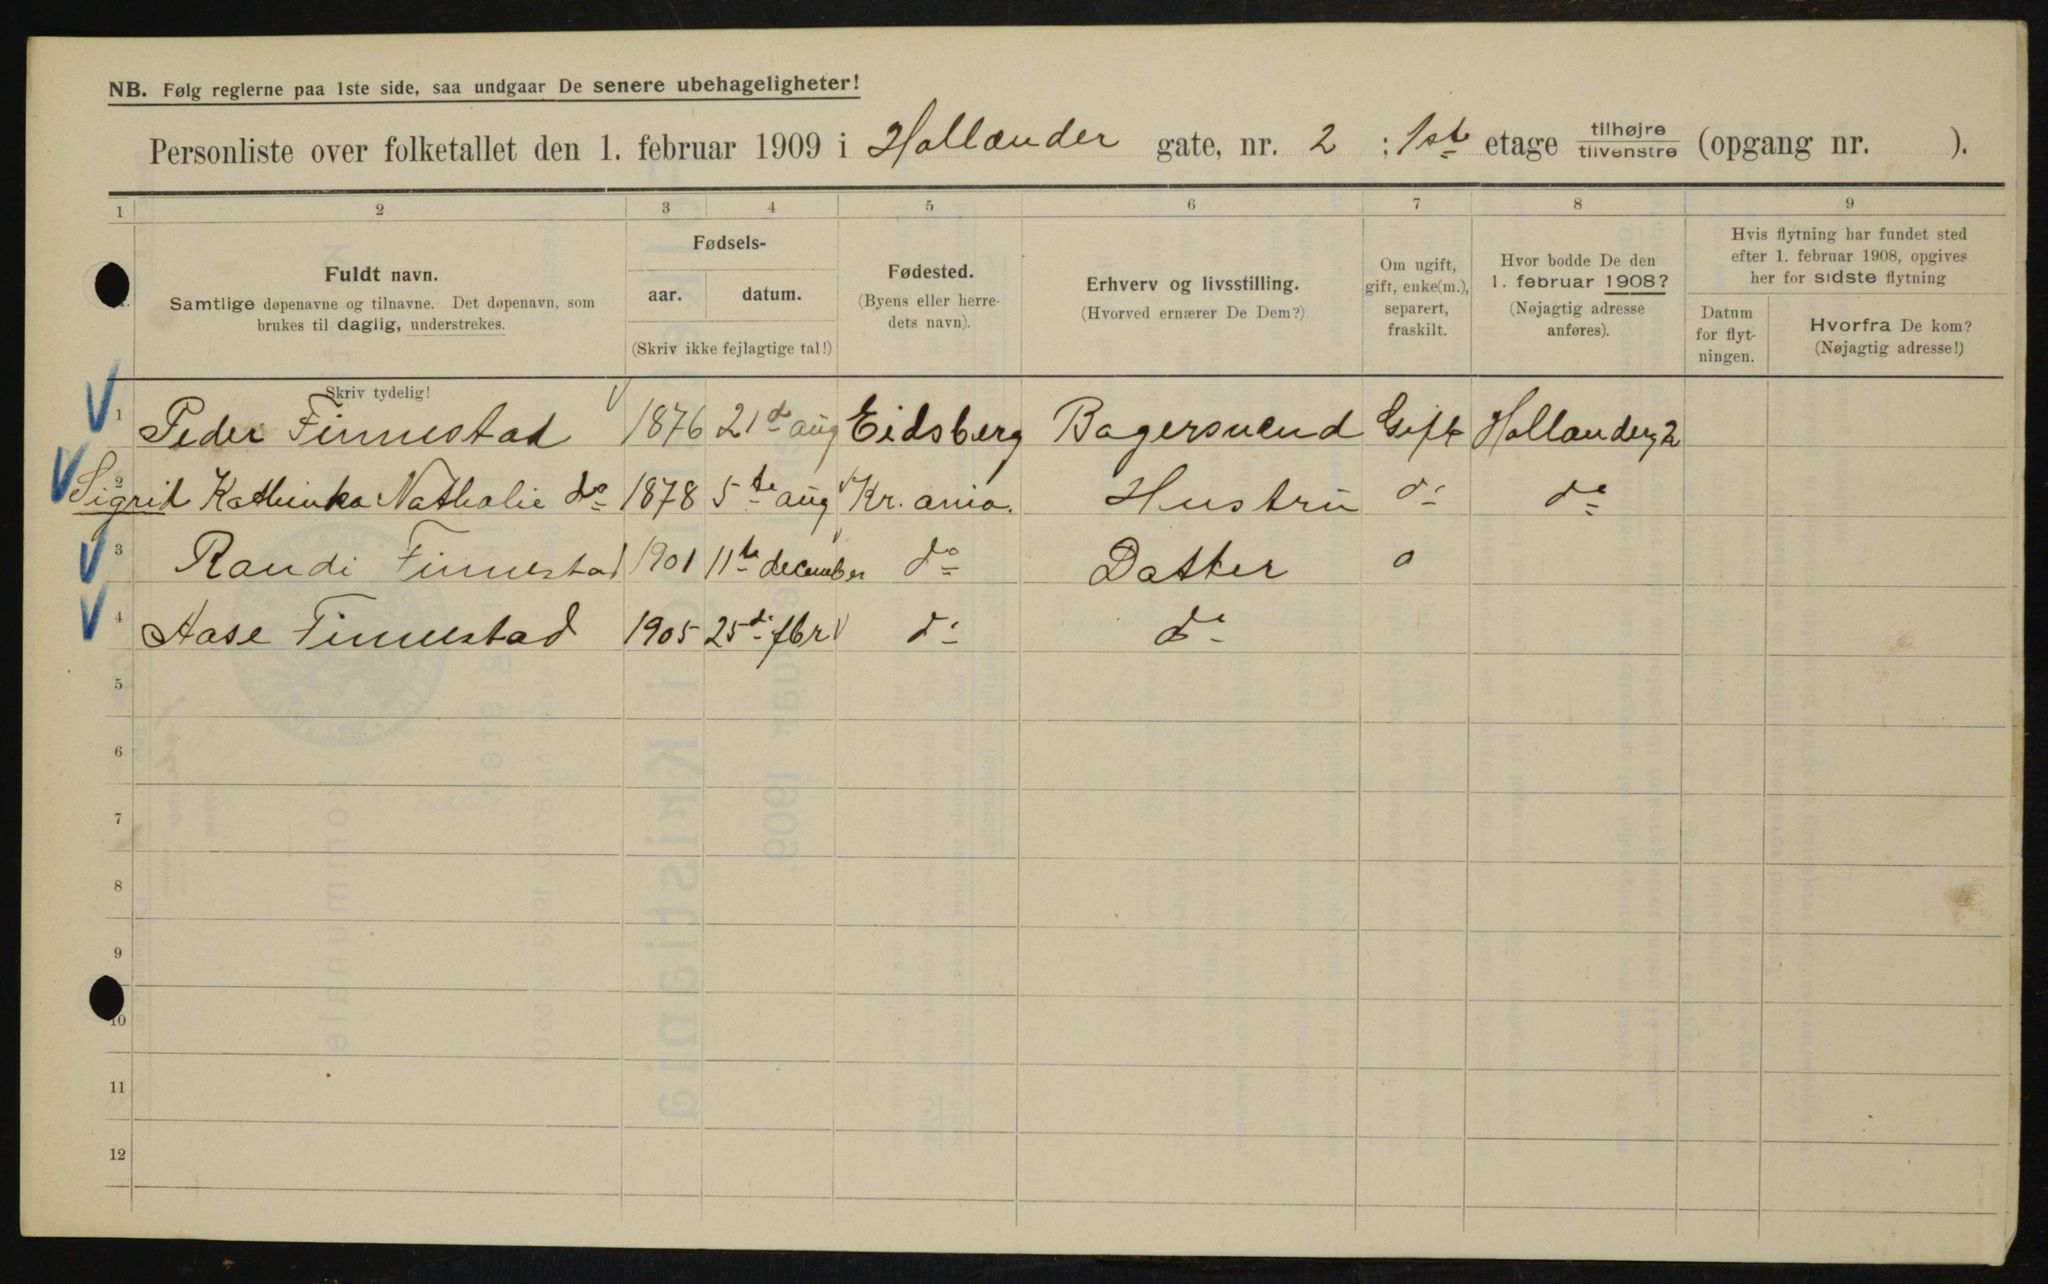 NB. Følg reglerne paa 1ste side, saa undgaar De senere ubehageligheter!
Personliste over folketallet den 1. februar 1909 i Hollænder gate, nr. 2 ; 1ste etage tilhøjre tilvenstre (opgang nr. ).
1 2 3 4 5 6 7 8 9
Fuldt navn.
Samtlige døpenavne og tilnavne. Det døpenavn, som
brukes til daglig, understrekes.
Skriv tydelig!
Fødsels-
aar. datum.
(Skriv ikke fejlagtige tal!)
Fødested.
(Byens eller herre-
dets navn).
Erhverv og livsstilling.
(Hvorved ernærer De Dem?)
Om ugift,
gift, enke(m.),
separert,
fraskilt.
Hvor bodde De den
1. februar 1908?
(Nøjagtig adresse
anføres).
Hvis flytning har fundet sted
efter 1. februar 1908, opgives
her for sidste flytning
Datum
for flyt-
ningen.
Hvorfra De kom?
(Nøjagtig adresse!)
1 Peder Finnestad 1876 21de aug Eidsberg Bagersvend Gift Hollænderg 2
2 Sigrid Kathinka Nathalie do 1878 5te aug Kr.ania. Hustru do do
3 Randi Finnestad 1901 11te december do Datter o
4 Aase Finnestad 1905 25de fbr do do
5
6
7
8
9
10
11
12